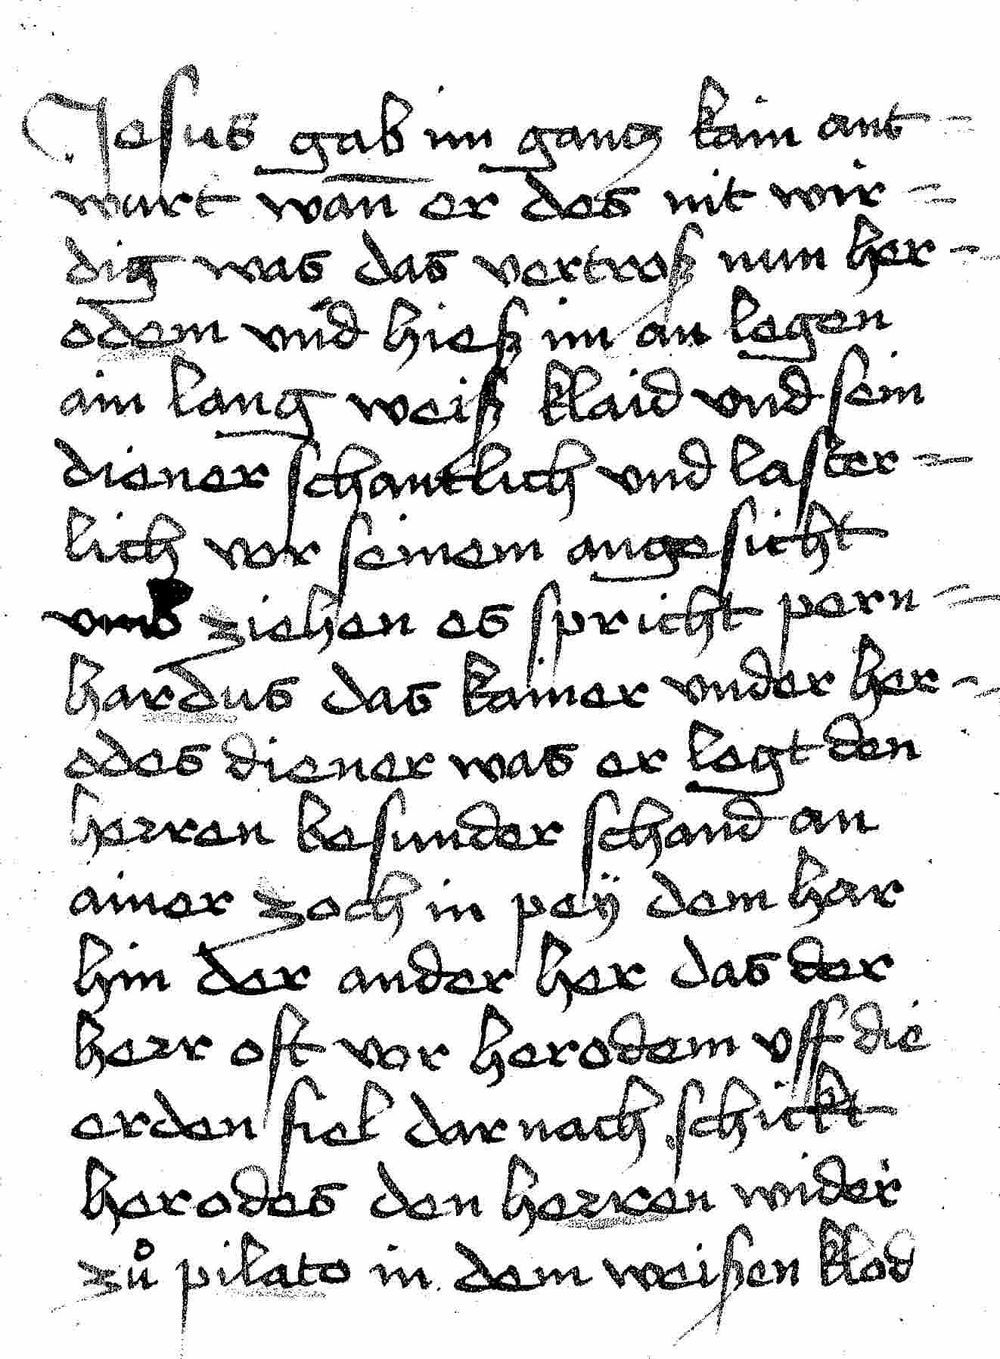 Jesus gab im gancz kain ant=
wurt wan̄ er des nit wir=
dig was das vertroß nun her=
odem vnd hieß im an legen
ain lang weiß klaid vnd sein
diener schantlich vnd laster=
lich vor seinem angesicht
vmb ziehen es spricht pern=
hardus das kainer vnder her=
odes diener was er legt den
herren besunder schand an
ainer zoch in peÿ dem har
hin der ander her das der
herr oft vor herodem vff die
erden fiel darnach schickt
herodes den herren wider
zů pilato in dem weißen klod